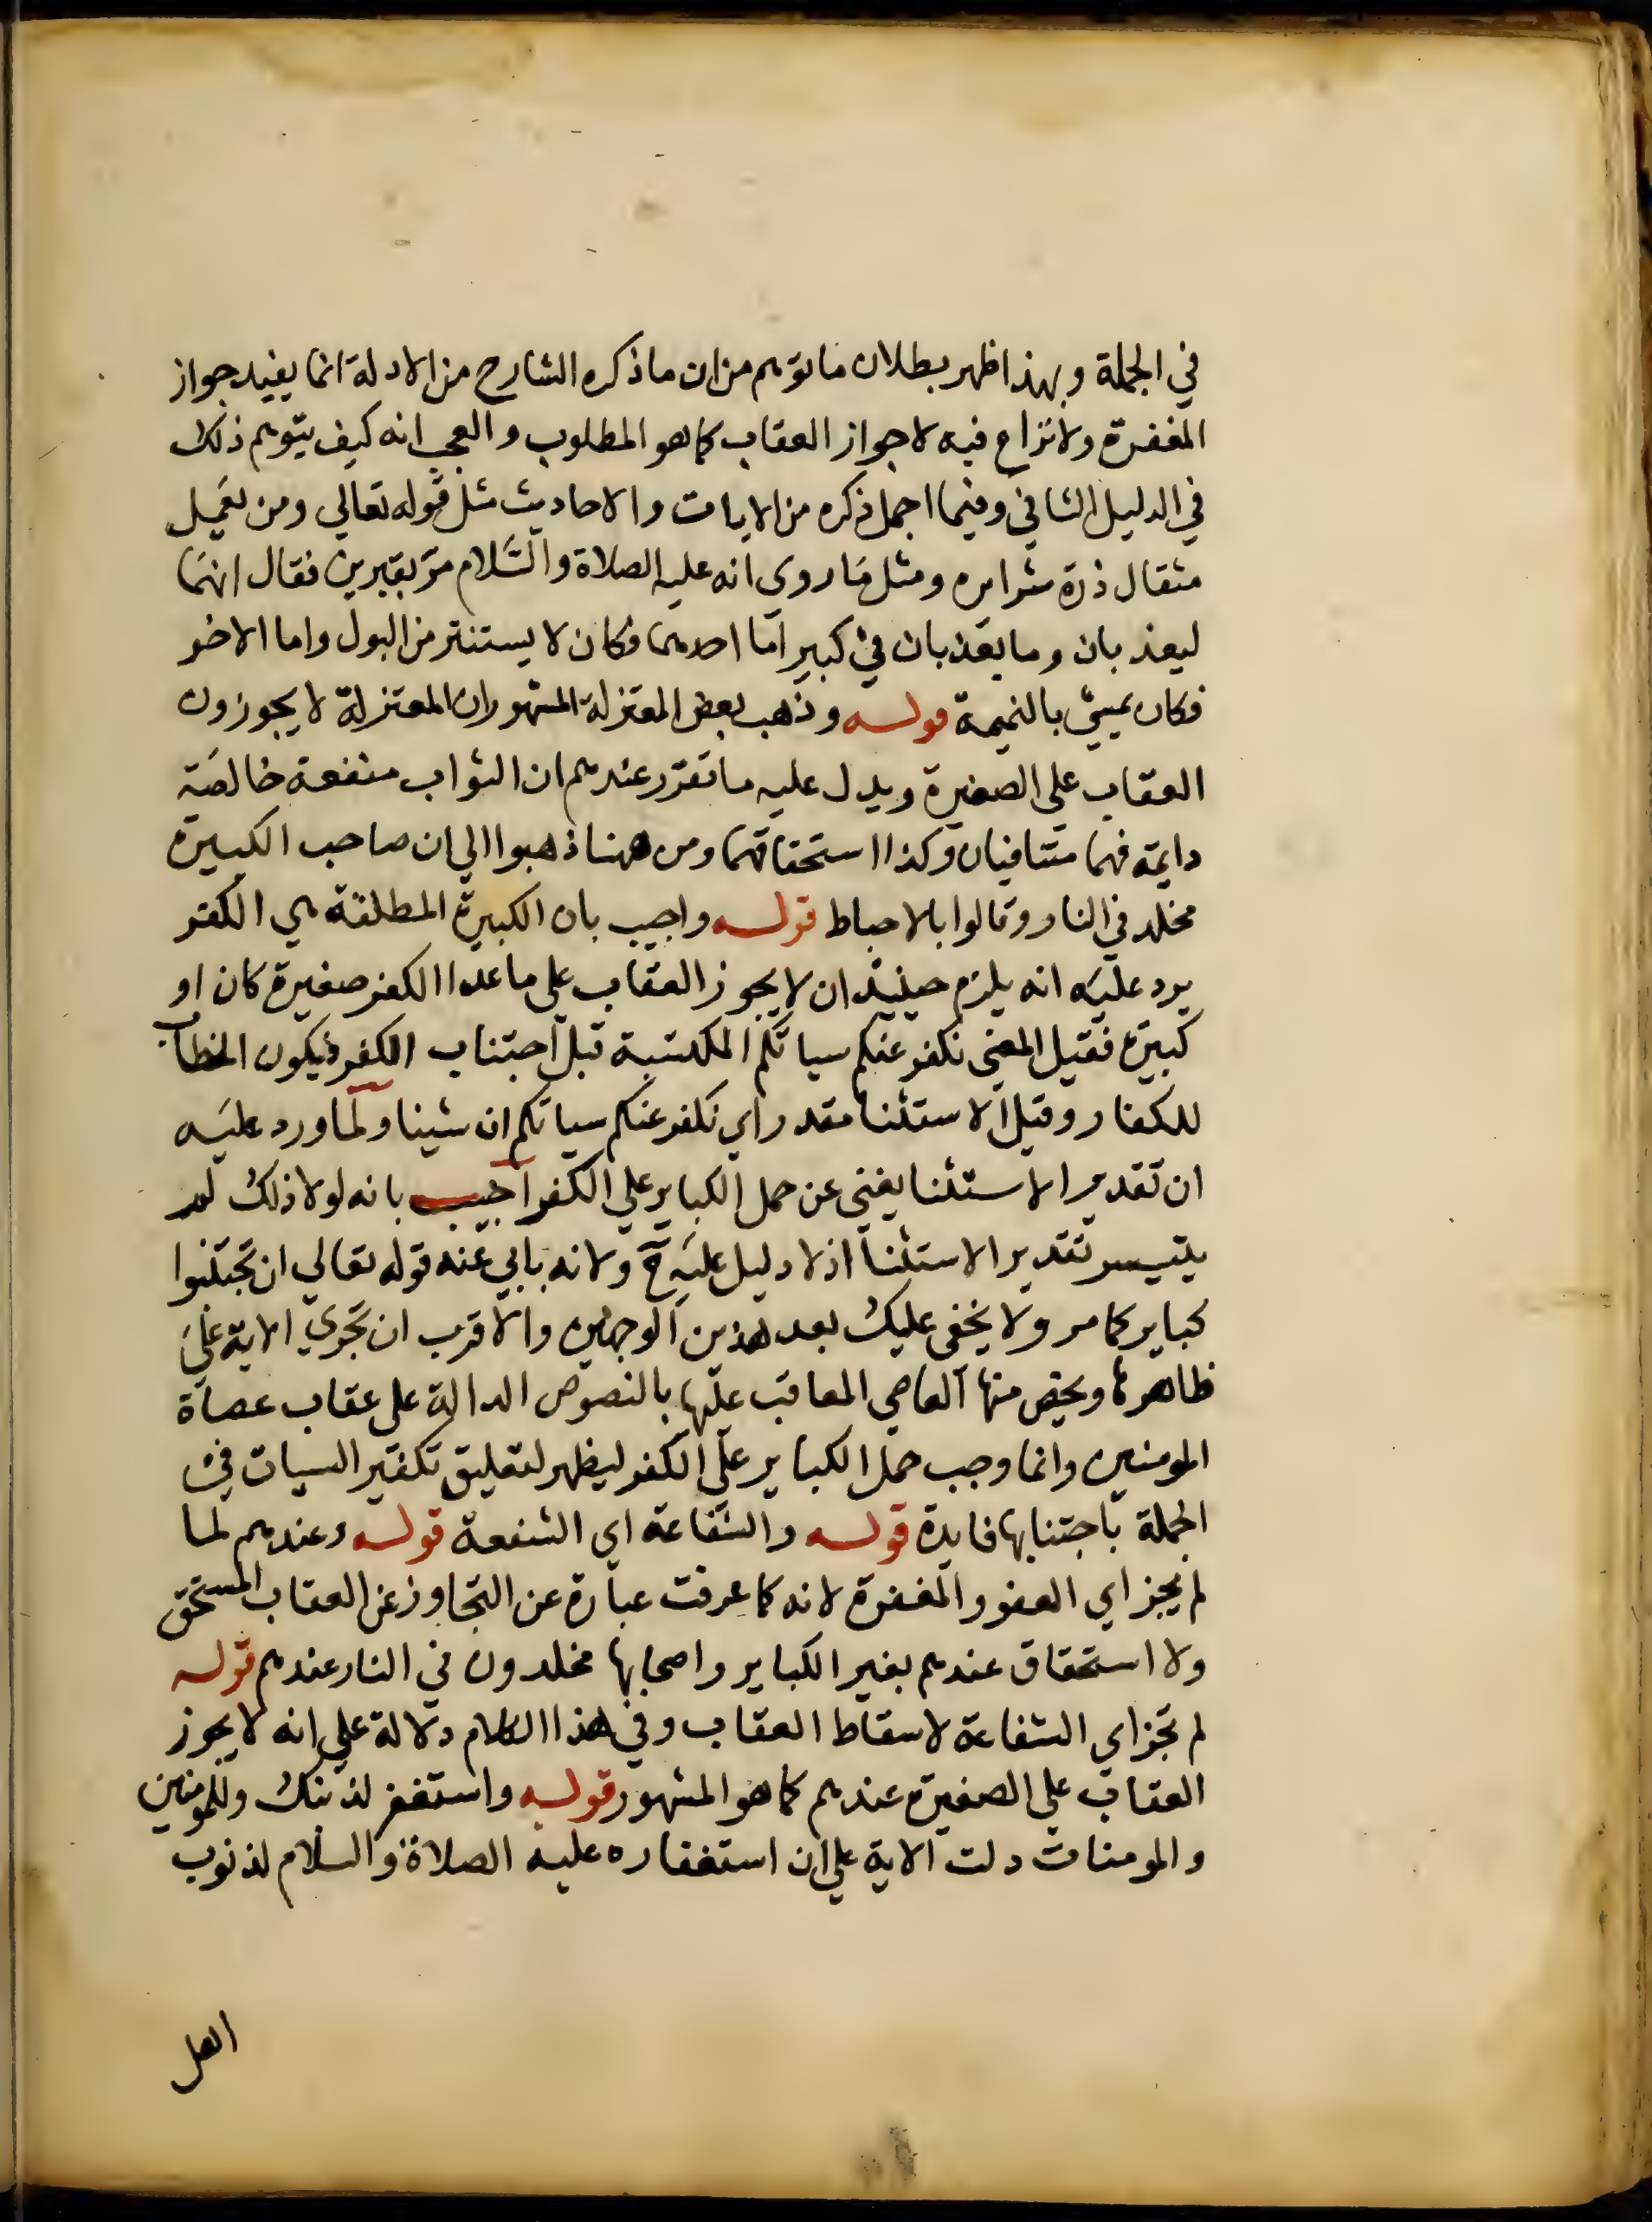 في الجملة وبهذا ظهر بطلان ما توهم من ان ما ذكره الشارح من الادلة انما يفيد جواز
المغفرة ولا نزاع فيه لا جواز العقاب كما هو المطلوب والعجب انه كيف يتوهم ذلك
في الدليل الثاني وفيما اجمل ذكره من الايات والاحاديث مثل قوله تعالي ومن يعمل
مثقال ذرة شرا يره ومثل ما روى انه عليه الصلاة والسلام مر بقبرين فقال انهما
ليعذبان وما يعذبان في كبير اما احدهما فكان لا يستنتر من البول واما الاخر
فكان يمشي بالنميمة قوله وذهب بعض المعتزلة المشهور ان المعتزلة لا يجوزون
العقاب علي الصغيرة ويدل عليه ما تقرر عندهم ان الثواب منفعة خالصة
دايمة فهما متنافيان وكذا استحقاقهما ومن ههنا ذهبوا الي ان صاحب الكبيرة
مخلد في النار وقالوا بالاحباط قوله واجيب بان الكبيرة المطلقة هي الكفر
يرد عليه انه يلزم حينيذ ان لا يجوز العقاب علي ما عدا الكفر صغيرة كان او
كبيرة فقيل المعنى نكفر عنكم سياتكم المكتسبة قبل اجتناب الكفر فيكون الخطاب
للكفار وقيل الاستثنا مقدر اي نكفر عنكم سياتكم ان شينا ولما ورد عليه
ان تقدير الاستثنا يغني عن حمل الكباير علي الكفر اجيب بانه لولا ذلك لم
يتيسر تقدير الاستثنا اذ لا دليل عليه ح ولانه يابي عنه قوله تعالي ان تجتنبوا
كباير كما مر ولا يخفى عليك بعد هذين الوجهين والاقرب ان تجري الاية على
ظاهرها ويخص منها العاصي المعاقب عليها بالنصوص الدالة على عقاب عصاة
المومنين وانما وجب حمل الكباير على الكفر ليظهر لتعليق تكفير السيات في
الجملة باجتنابها فايدة قوله والشفاعة اي الشفعة قوله وعندهم لما
لم يجز اي العفو والمغفرة لانه كما عرفت عبارة عن التجاوز عن العقاب المستحق
ولا استحقاق عندهم بغير الكباير واصحابها مخلدون في النار عندهم قوله
لم تجز اي الشفاعة لاسقاط العقاب وفي هذا الكلام دلالة علي انه لا يجوز
العقاب علي الصغيرة عندهم كما هو المشهور قوله واستغفر لذنبك وللمومنين
والمومنات دلت الاية علي ان استغفاره عليه الصلاة والسلام لذنوب